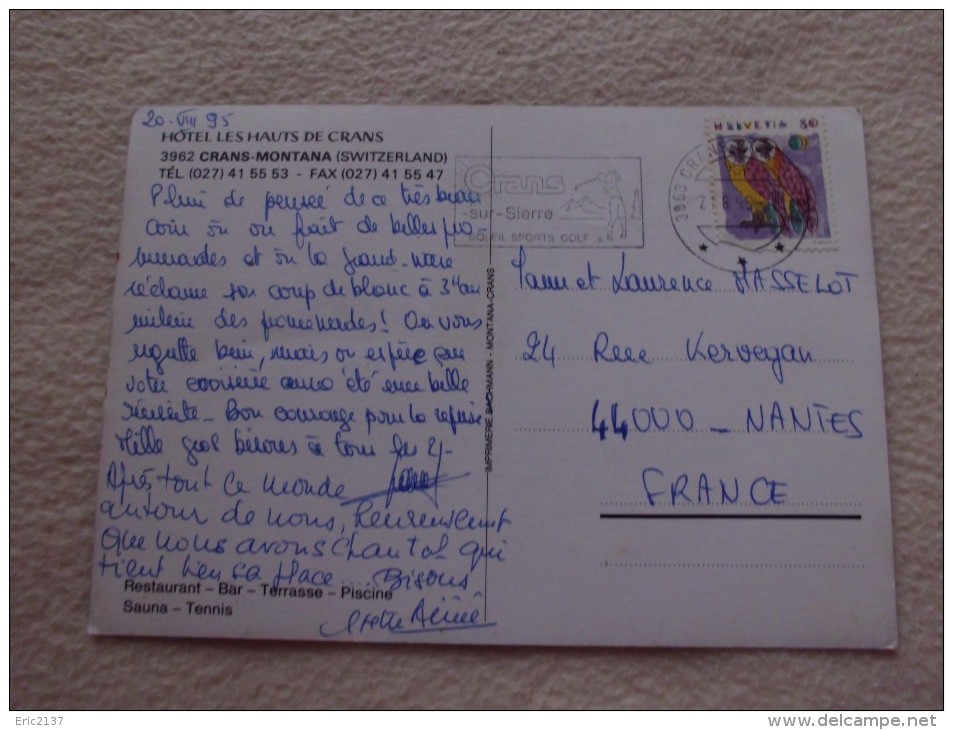 20-VIII 95
HÔTEL LES HAUTS DE CRANS
3962 CRANS-MONTANA (SWITZERLAND)
TÉL (027) 41 55 53 - FAX (027) 41 55 47
de ce très beau
coin où on fait de belles pro-
menades et où la grand-mère
réclame son coup de blanc à 3h au
milieu des promenades! On vous
regrette bien, mais on espère que
votre aura été une belle
réussite - Bon courage pour la reprise
Mille gros bécots à tous les 4-
Après tout ce monde
autour de nous, heureusement
que nous avons Chantal qui
tient bien sa place.... Bisous
Restaurant - Bar - Terrasse - Piscine
Sauna - Tennis
IMPRIMERIE BACHMANN - MONTANA-CRANS
Crans
-sur-Sierre
SOLEIL SPORTS GOLF
HELVETIA 80
3963
et Laurence MASSELOT
24 Rue Kervegan
44000 - NANTES
FRANCE
Eric2137
http://www.delcampe.net